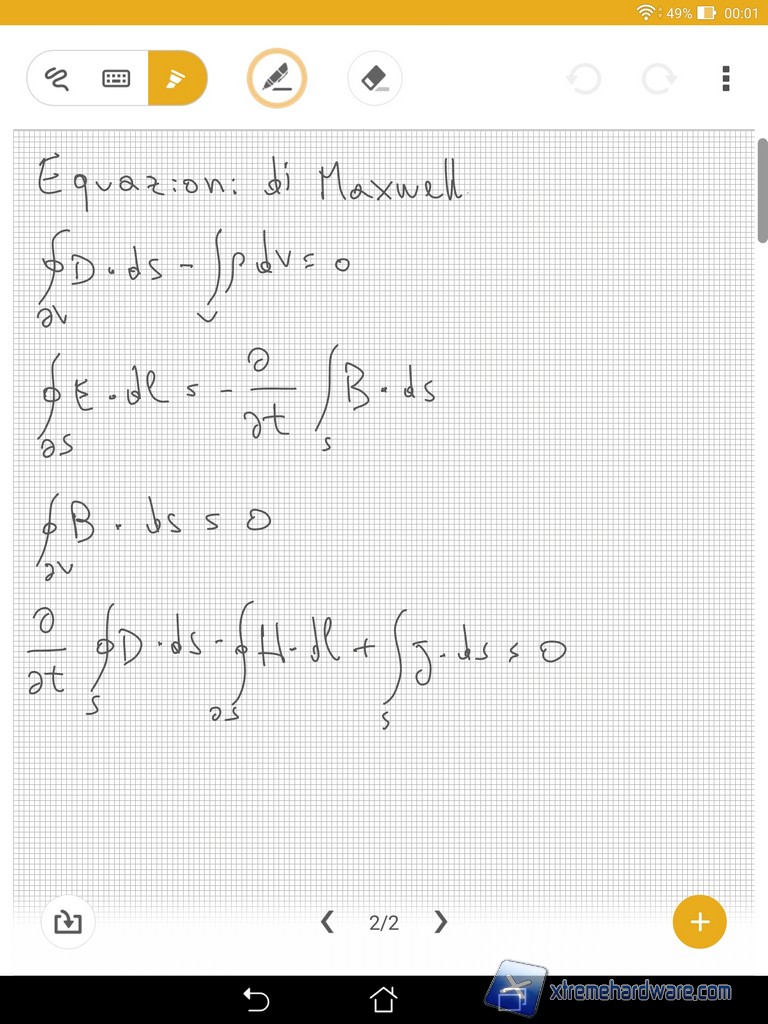 49% 00:01
Equazioni di Maxwell
∮_∂V D · ds - ∫_V ρ dV = 0
∮_∂S E · dl = - ∂/∂t ∫_S B · ds
∮_∂V B · ds = 0
∂/∂t ∮_S D · ds - ∮_∂S H · dl + ∫_S J · ds = 0
2/2
xtremehardware.com